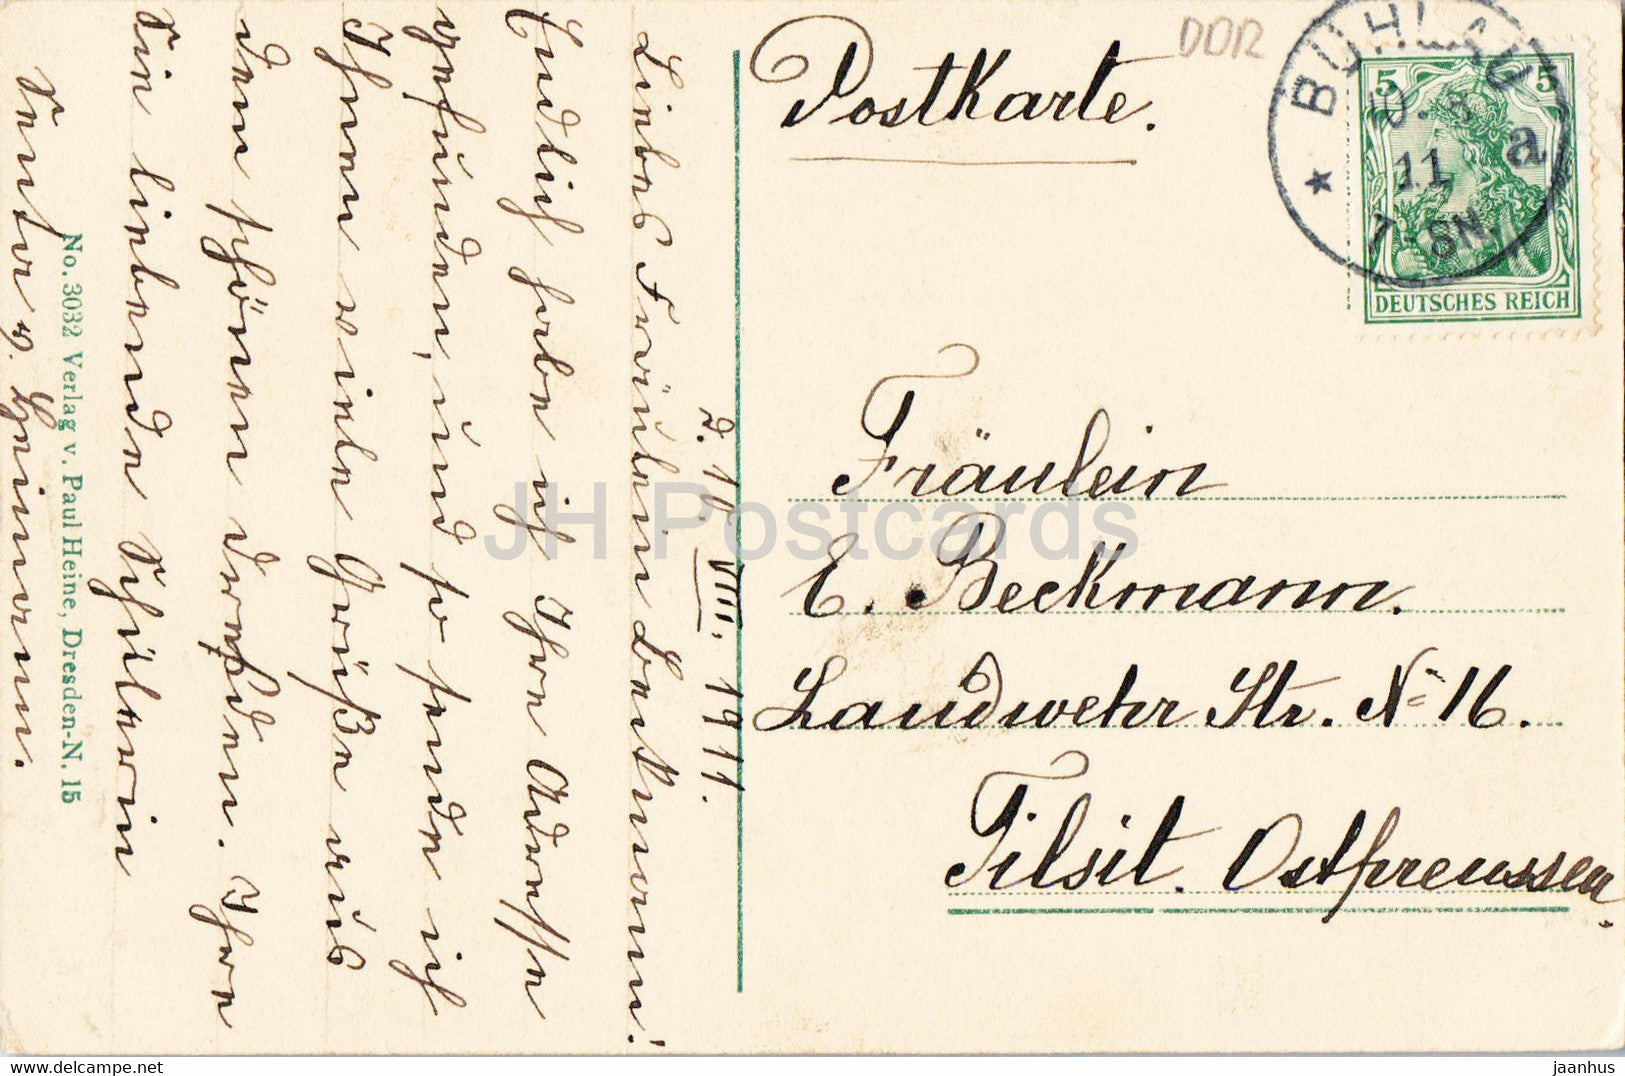 DDR
Postkarte.
BÜHLAU
10. 8
11
a
7-8N.
5 5
DEUTSCHES REICH
Fräulein
E. Beckmann.
Landwehr Str. N= 16.
Tilsit. Ostpreussen.
D. 10. VIII. 1911.
Liebes Fräulein Beckmann!
Endlich habe ich Ihre Adresse
gefunden, und so sende ich
Ihnen viele Grüße aus
dem schönen Dresden. Ihre
Sie liebende Schülerin
No. 3032 Verlag v. Paul Heine, Dresden-N. 15
JH Postcards
jaanhus